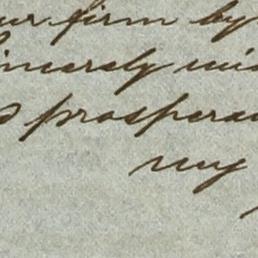 our firm by
sincerely wis
prospero
my